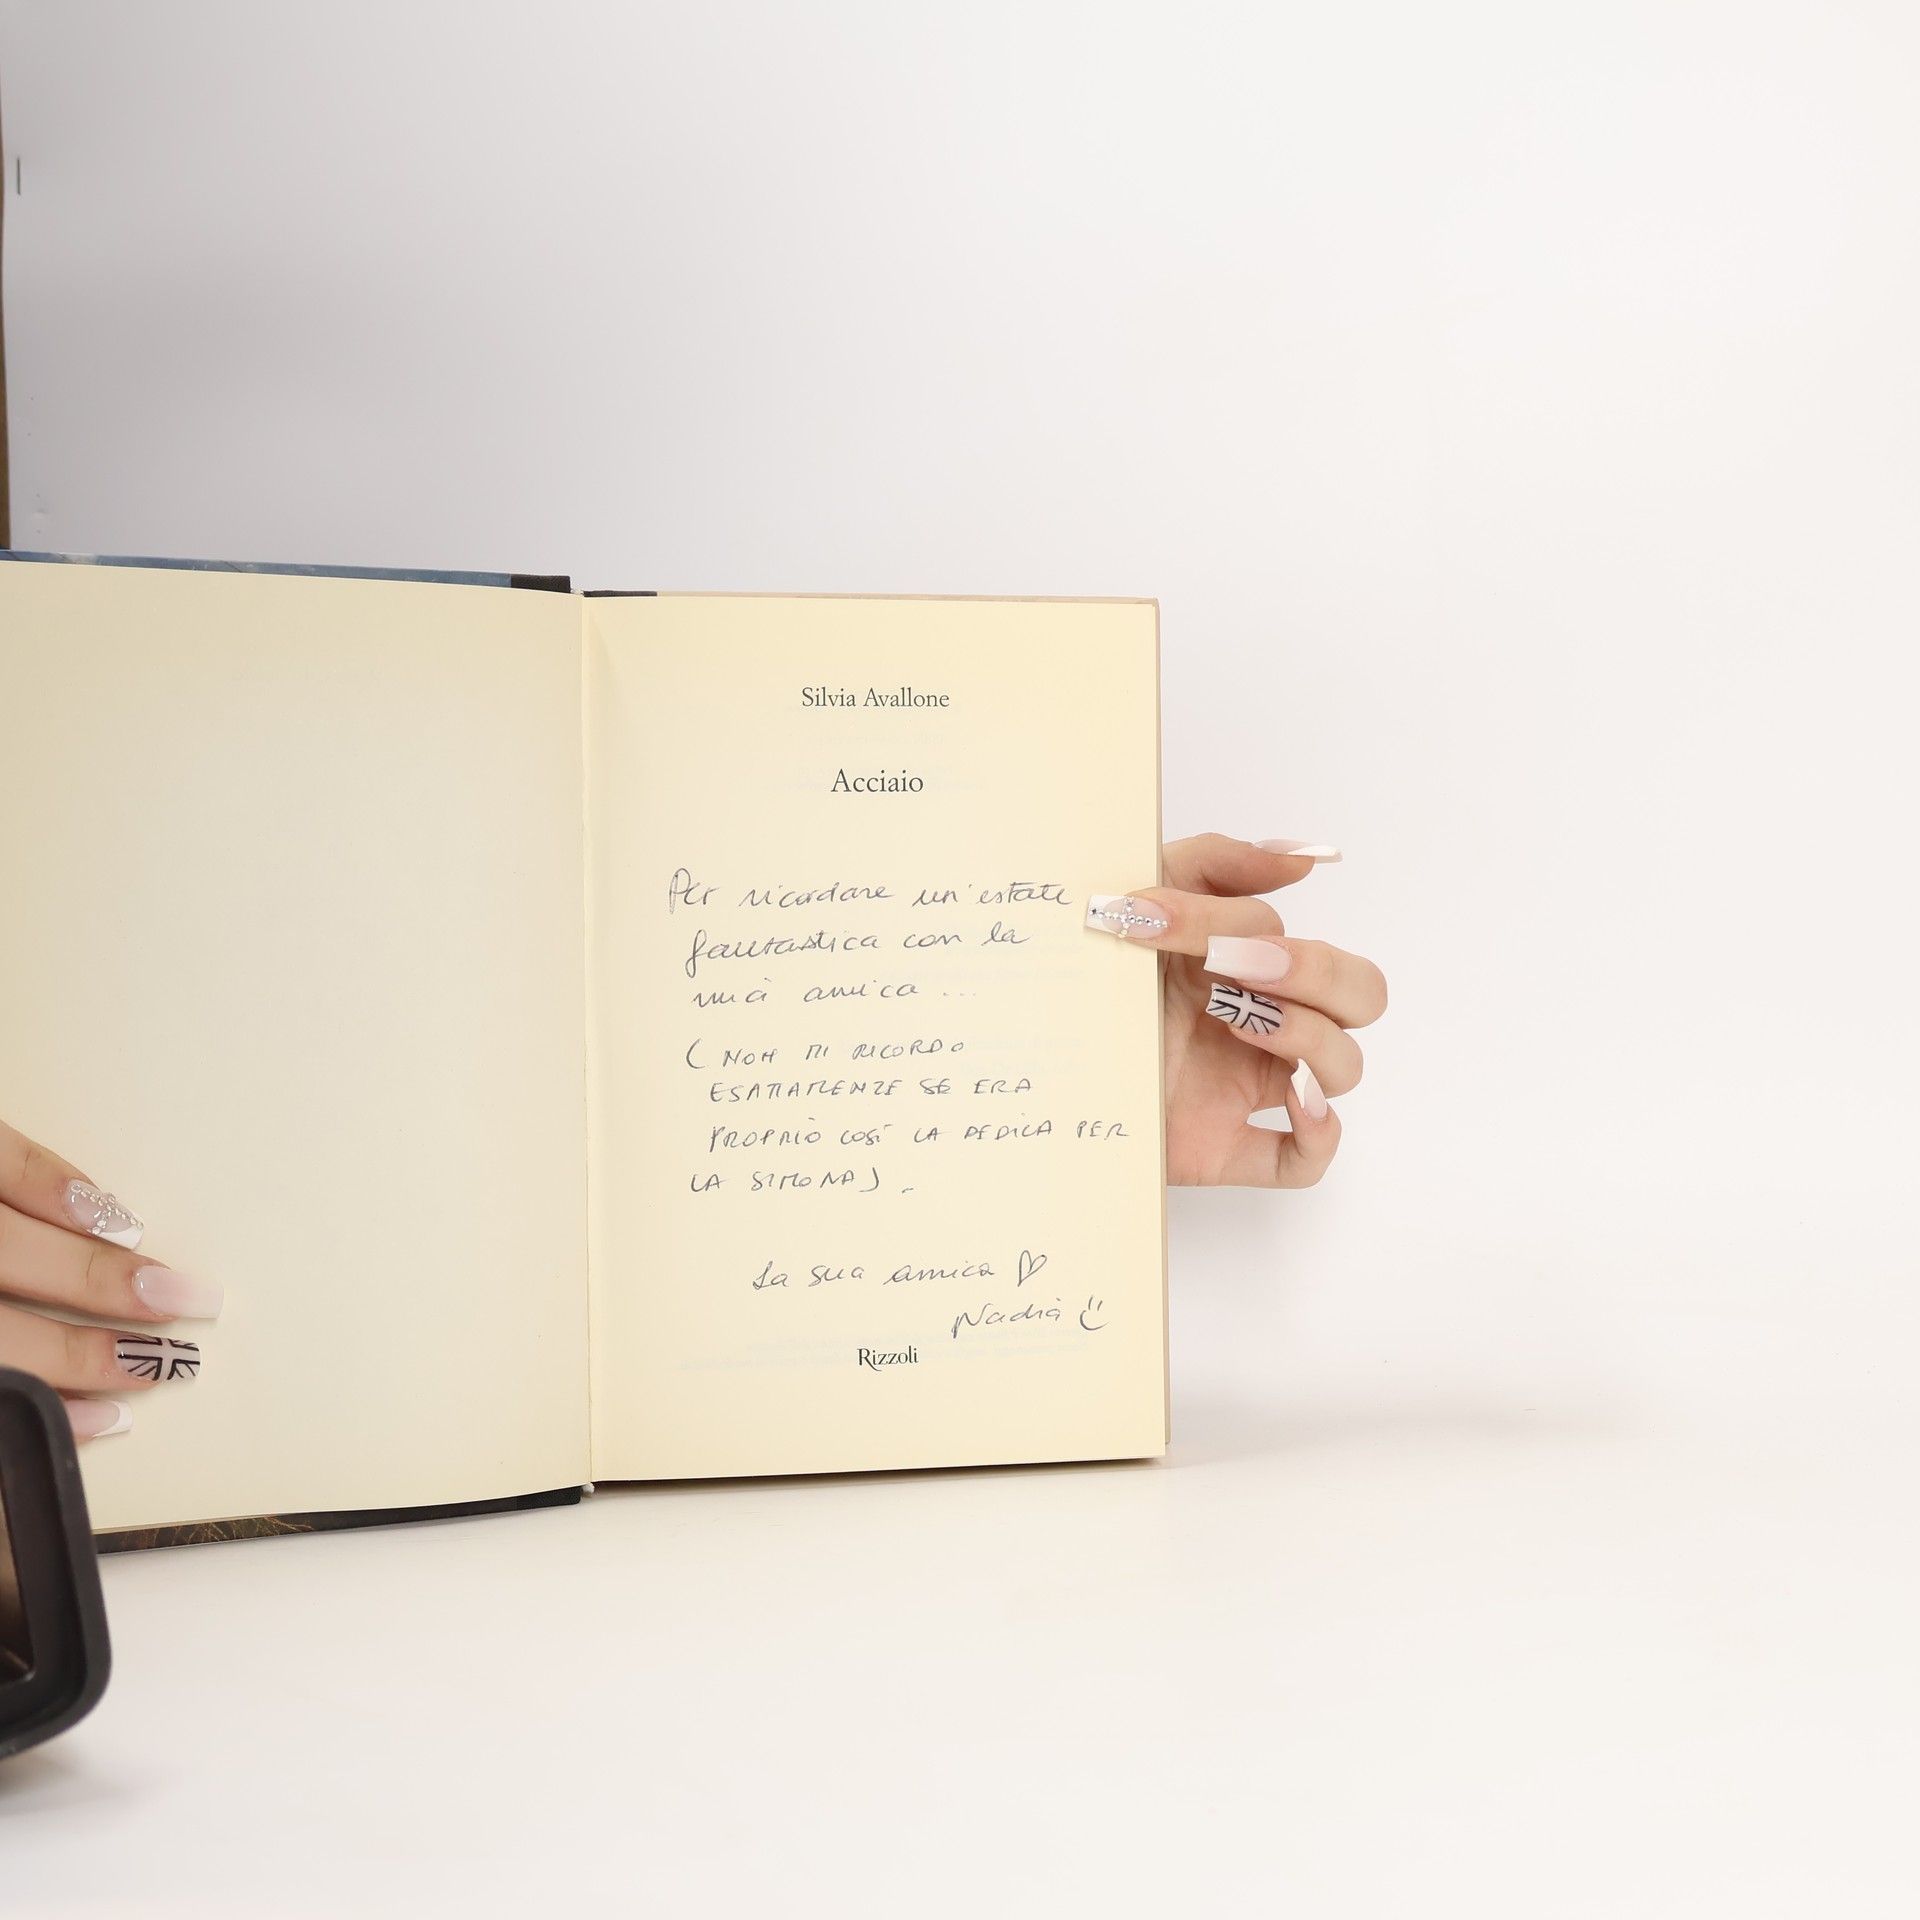 Silvia Avallone
Acciaio
Per ricordare un'estate
fantastica con la
mia amica ...
( NON MI RICORDO
ESATTAMENTE SE ERA
PROPRIO COSÌ LA DEDICA PER
LA SIMONA) .
La sua amica ♡
Nadia
Rizzoli